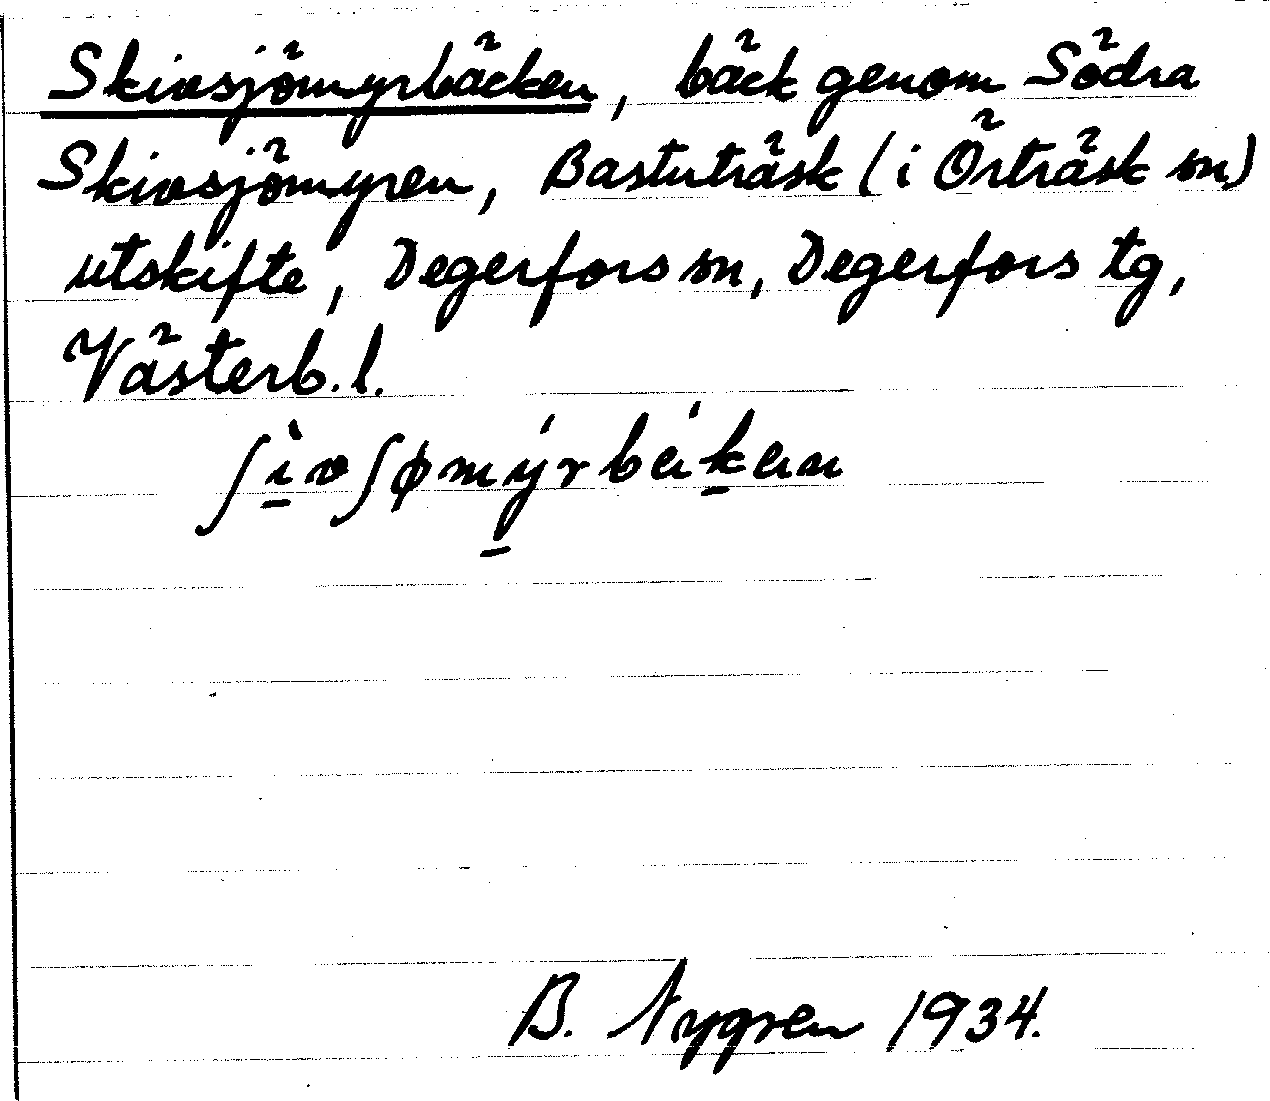 Skivsjömyrbäcken, bäck genom Södra
Skivsjömyren, Bastuträsk (i Örträsk sn)
utskifte, Degerfors sn, Degerfors tg,
Västerb. l.
B. Nygren 1934.